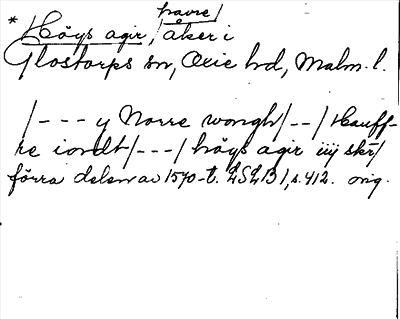 havre/
* Höys agir, /åker i
Glostorps sn, Oxie hd, Malm. l.
/--- y Norre wongh/--/ Hauff-
re iordt/---/ höys agir iiij skr/
förra delen av 1570-t. LSLB I, s. 412. orig.